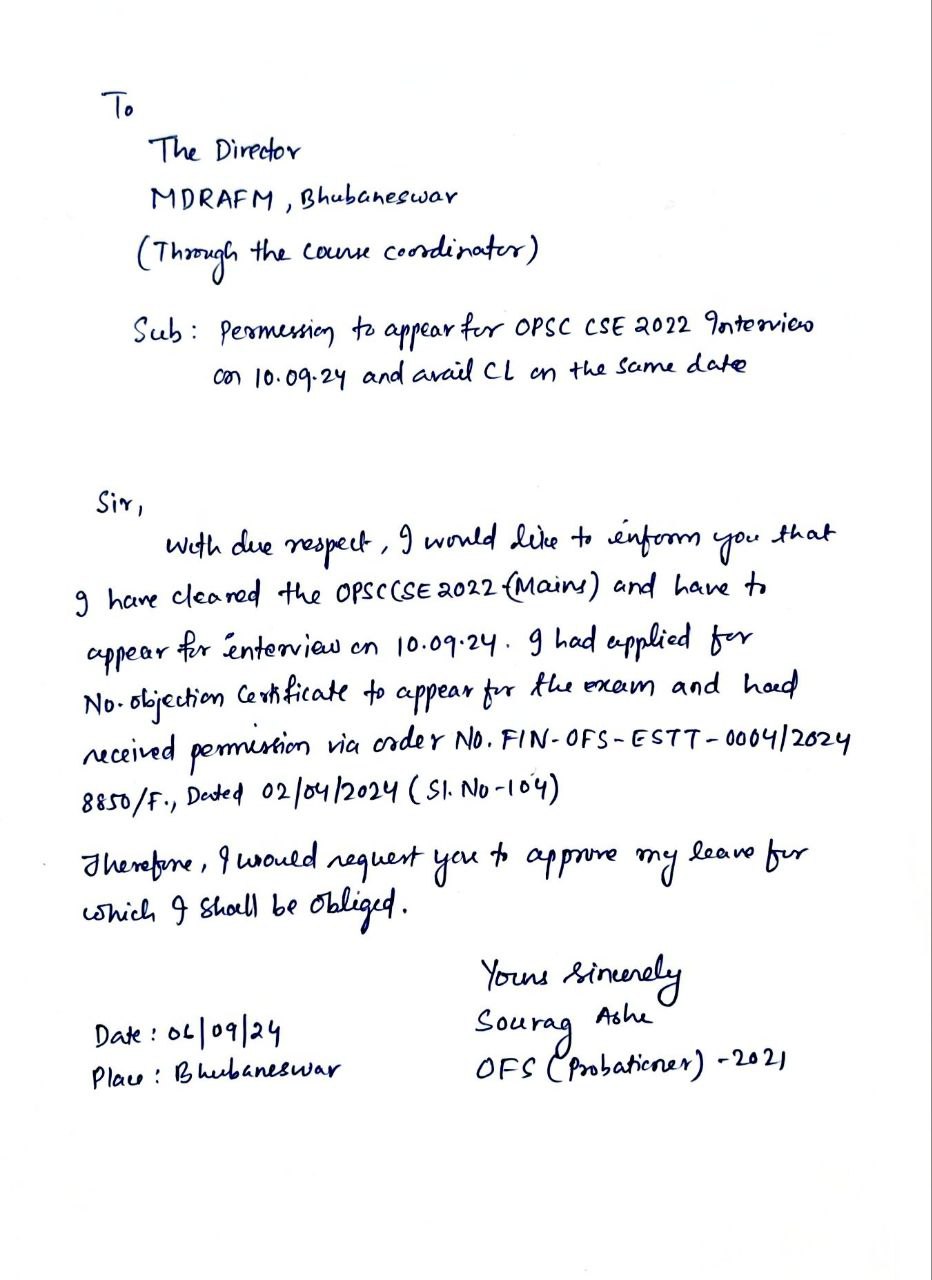 To
The Director
MDRAFM, Bhubaneswar
(Through the course coordinator)
Sub: Permession to appear for OPSC CSE 2022 Interview
on 10.09.24 and avail CL on the same date
Sir,
With due respect, I would like to inform you that
I have cleared the OPSC CSE 2022 (Mains) and have to
appear for interview on 10.09.24. I had applied for
No-objection Certificate to appear for the exam and had
received permission via order No. FIN-OFS-ESTT-0004/2024
8850/F., Dated 02/04/2024 (Sl. No-104)
Therefore, I would request you to approve my leave for
which I shall be obliged.
Yours Sincerely
Sourag Ashe
OFS (Probationer) -2021
Date: 06/09/24
Place: Bhubaneswar